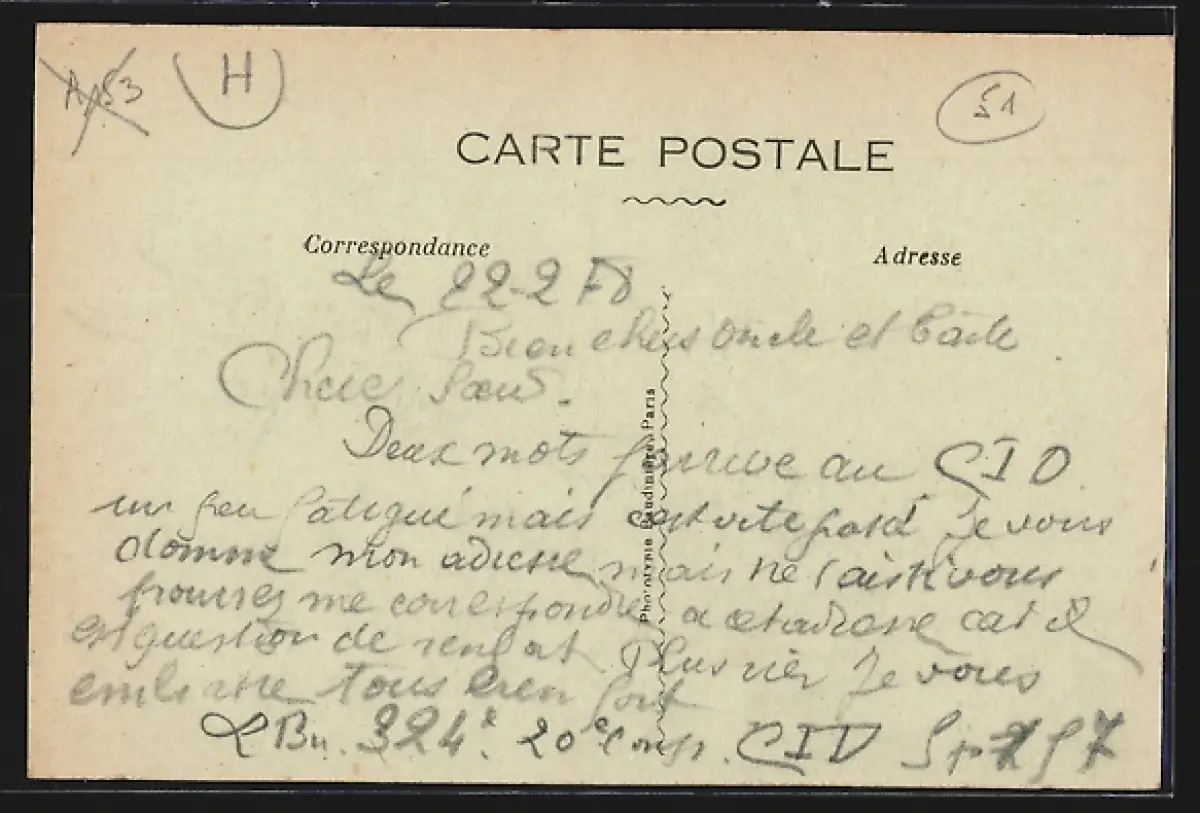 A 53
H
51
CARTE POSTALE
Correspondance
Adresse
Le 22-2
Bien chers oncle et
Chere Sœur.
Deux mots j'arrive au CID
un peu fatigué mais c'est vite passé Je vous
donne mon adresse mais ne sais si vous
pourrez me correspondre a cet adresse car il
est question de renfort. Plus rien Je vous
embrasse tous bien fort
Bn. 324e. 20e Comp. CID Sp
Phototypie Baudinière, Paris